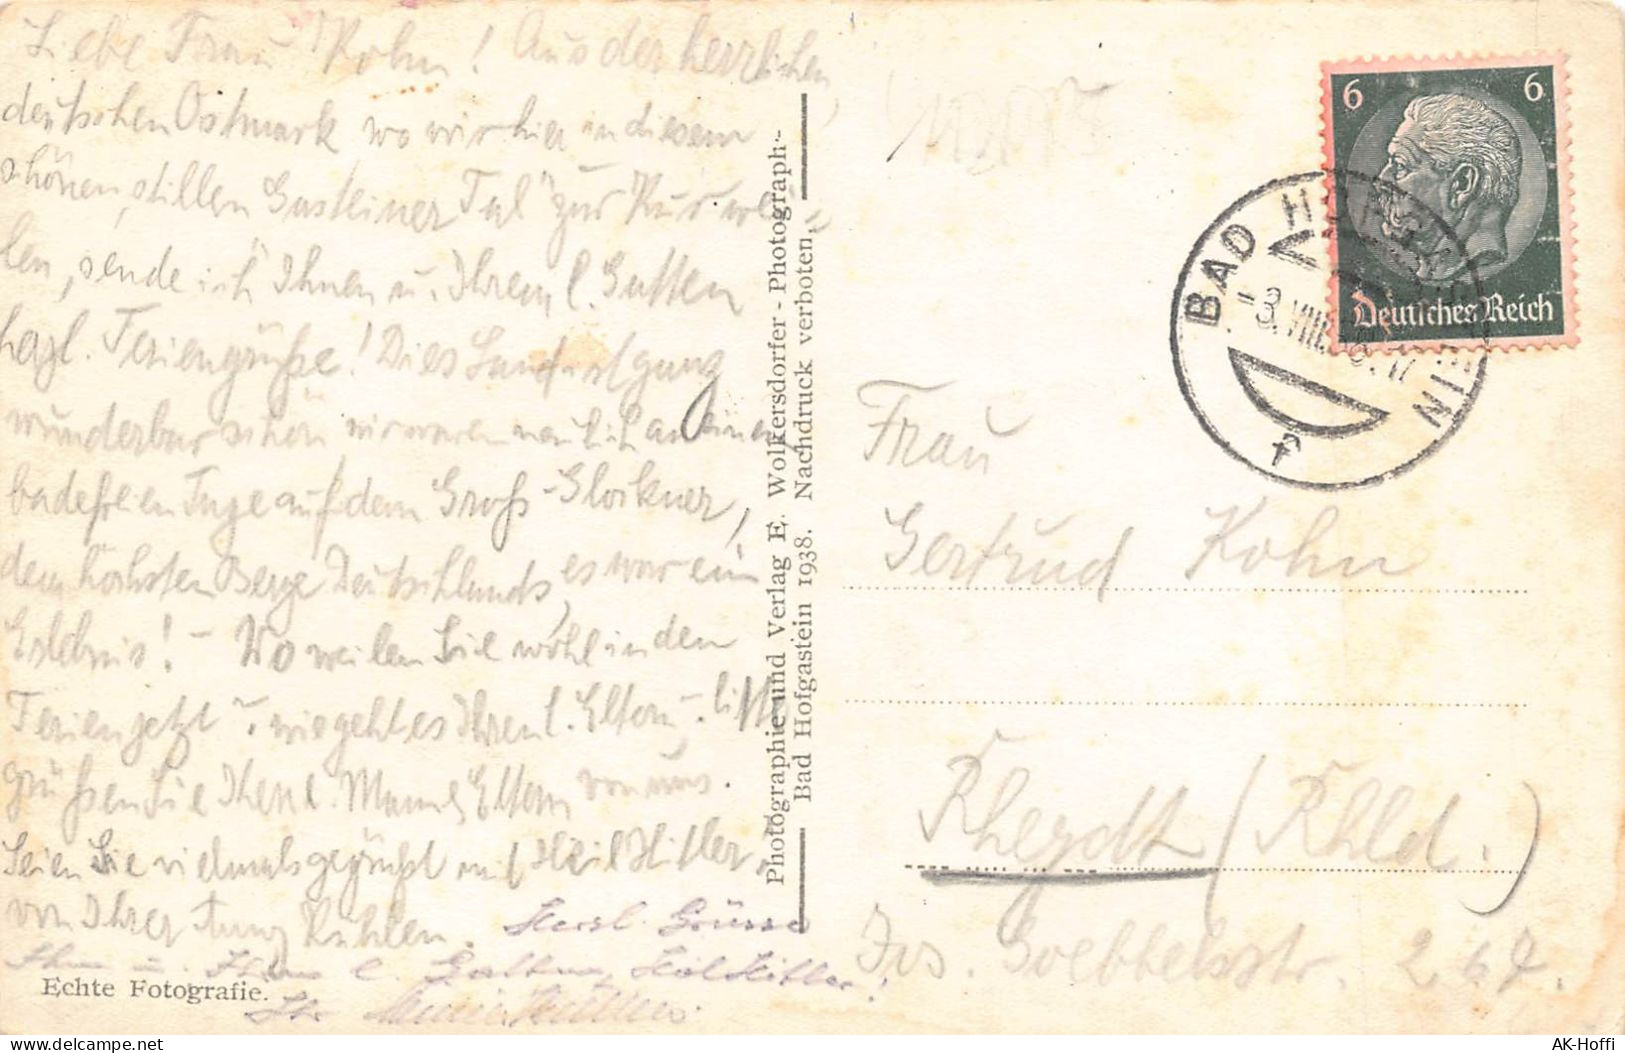 Liebe Frau Kohn! Aus der herrlichen
deutschen Ostmark wo wir hier in diesem
schönen, stillen Gasteiner Tal zur Kur wei-
len, sende ich Ihnen u. Ihrem l. Gatten
herzl. Feriengrüße! Dies Land ist ganz
wunderbar schön wir waren neulich an einem
badefreien Tage auf dem Groß-Glockner,
dem höchsten Berge Deutschlands, es war ein
Erlebnis! - Wo weilen Sie wohl in den
Ferien jetzt u. wie geht es Ihren l. Eltern - bitte
grüßen Sie Ihren l. Mann, Eltern von uns.
Seien Sie vielmals gegrüßt mit Heil Hitler,
von Ihrer Kuhlen.
Herzl. Grüsse
Ihnen u. Ihrem l. Gatten, Heil Hitler!
Ihr
Echte Fotografie.
Photographie und Verlag E. Wolkersdorfer - Photograph -
Bad Hofgastein 1938. Nachdruck verboten.
6 6
Deutsches Reich
BAD HOFGASTEIN
-3.VIII.38.17
f
Frau
Gertrud Kohn
Rheydt (Rhld.)
Jos. Goebbelsstr. 267.
AK-Hoffi
delcampe.net